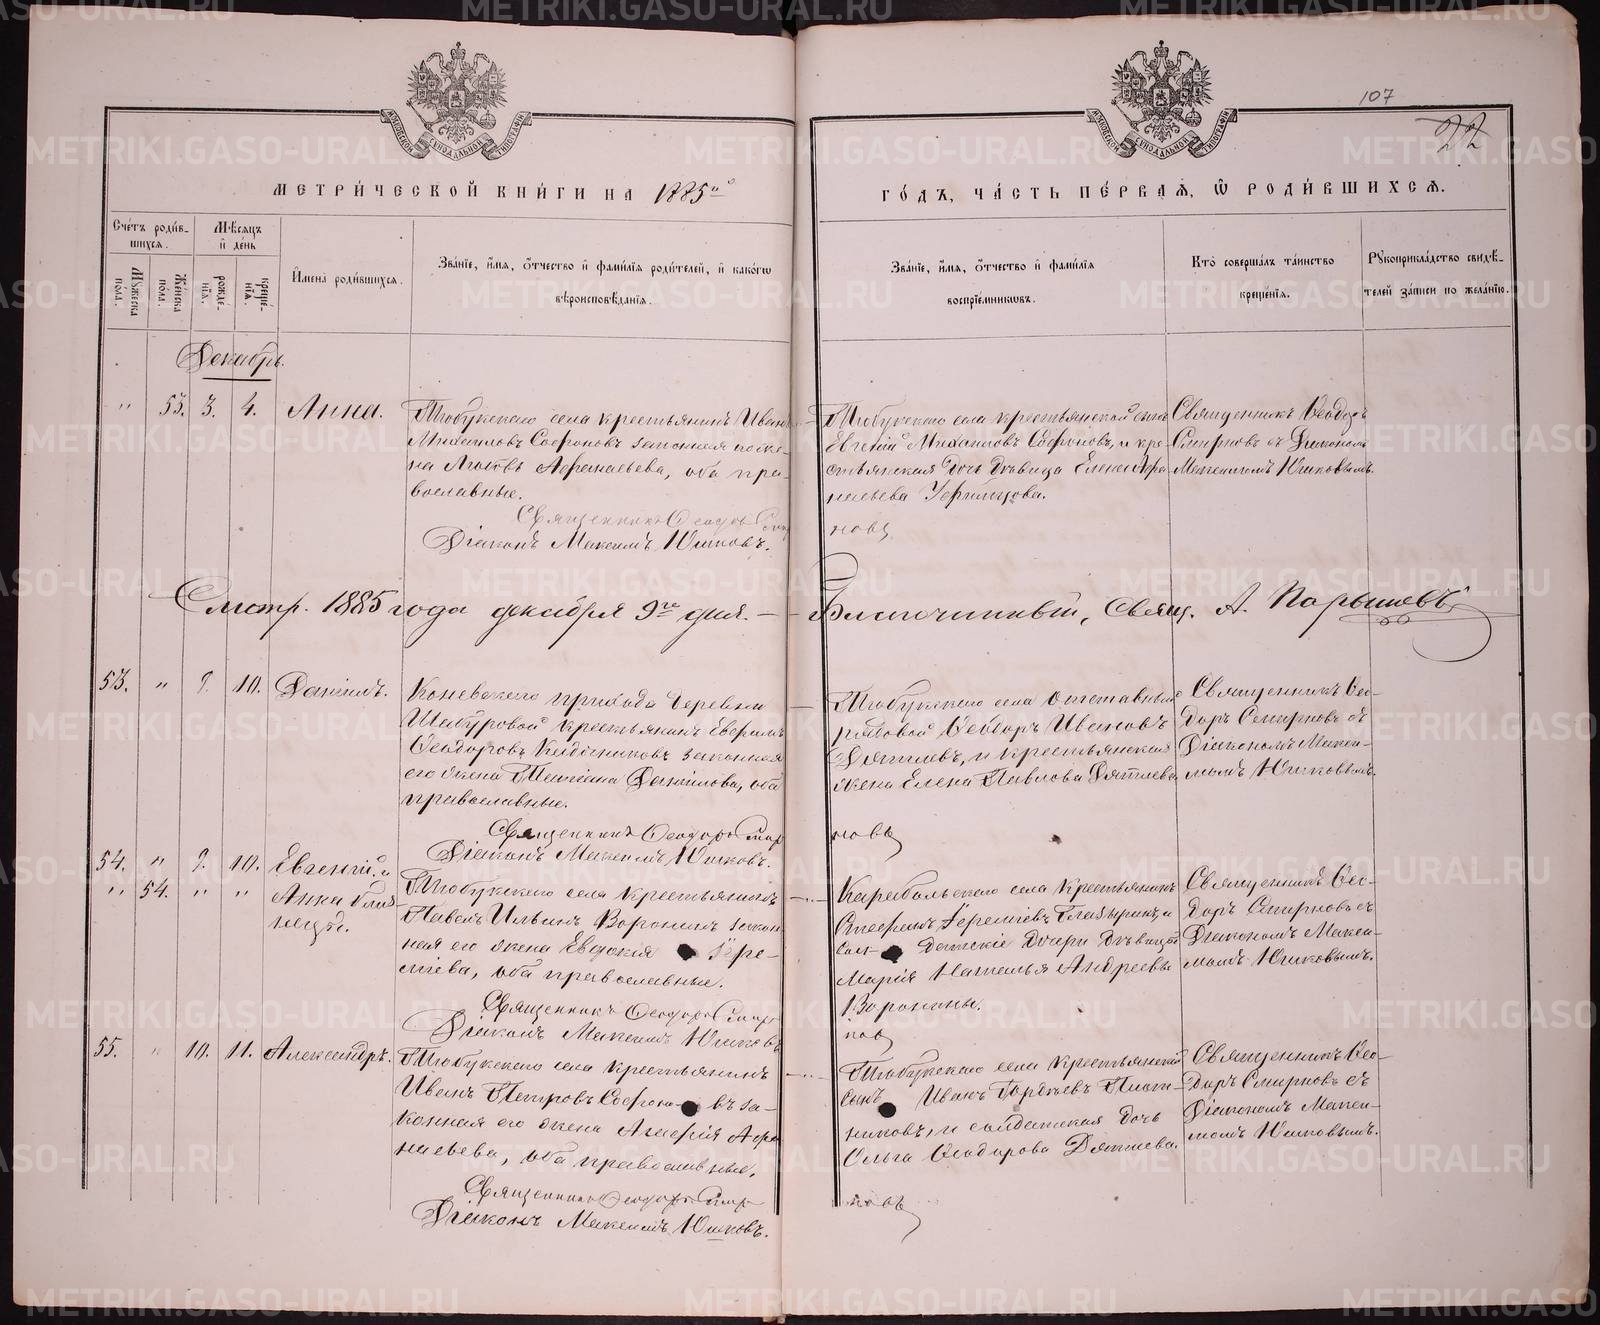 107
22
МЕТРИ́ЧЕСКОЙ КНИ́ГИ НА 1885й
ГО́ДЪ, ЧА́СТЬ ПЕ́РВАѦ, Ѿ РОДИ́ВШИХСѦ.
Сче́тъ роди́в-
шихсѧ.
Мꙋжеска по́ла.
Же́нска по́ла.
Мѣ́сѧцъ и҆ де́нь
рожде́-нїѧ.
креще́-нїѧ.
И҆мена̀ роди́вшихсѧ.
Зва́нїе, и҆́мѧ, ѻ҆́тчество и҆ фами́лїѧ роди́телей, и҆ како́гѡ
вѣроисповѣ́данїѧ.
Зва́нїе, и҆́мѧ, ѻ҆́тчество и҆ фами́лїѧ
воспрїе́мникѡвъ.
Кто̀ соверша́лъ та́инство
креще́нїѧ.
Рꙋкоприкла́дство свидѣ́-
телей за́писи по жела́нїю.
Декабрь.
" 55. 3. 4. Анна.
Тюбукскаго села крестьянинъ Иванъ
Михаиловъ Софроновъ законная его же-
на Любовь Афанасьева, оба пра-
вославные.
Священникъ Ѳеодоръ Смир
Діаконъ Максимъ Юшковъ.
Тюбукскаго села крестьянской сынъ
Евгений Михаиловъ Софроновъ, и кре-
стьянская дочь дѣвица Елена Афа-
насьева
новъ
Священникъ Ѳеодоръ
Смирновъ съ Діакономъ
Максимомъ Юшковымъ.
Смотр. 1885 года декабря 9го дня. — Благочинный, Свящ. А. Порышевъ
53. " 9. 10. Даніилъ.
Коневскаго прихода деревни
Шабуровой крестьянинъ Еврамъ
Ѳеодоровъ законная
его жена Татіана Даніилова, оба
православные.
Священникъ Ѳеодоръ Смир
Діаконъ Максимъ Юшковъ.
Тюбукскаго села отставный
рядовой Ѳеодоръ Ивановъ
Дятлевъ, и крестьянская
жена Елена Павлова Дятлева.
новъ
Священникъ Ѳео-
доръ Смирновъ съ
Діакономъ Макси-
момъ Юшковымъ.
54. " 9. 10. Евгений и
" 54. " " Анна близ
нецы.
Тюбукскаго села крестьянинъ
Павелъ Ильинъ Воронинъ закон
ная его жена Евдокія Іере-
міева, оба православные.
Священникъ Ѳеодоръ Смир
Діаконъ Максимъ Юшковъ
Карабольскаго села крестьянинъ
Стефанъ Іереміевъ Глазыринъ, и
сол- датскіе дочери дѣвицы
Марія Наталья Андреевы
Воронины.
нов
Священникъ Ѳео-
доръ Смирновъ съ
Діакономъ Макси-
момъ Юшковымъ.
55. " 10. 11. Александръ.
Тюбукскаго села крестьянинъ
Иванъ Петровъ Софроно- въ за-
конная его жена Агафія Афа
насьева, оба православные.
Священникъ Ѳеодоръ Смир
Діаконъ Максимъ Юшковъ.
Тюбукскаго села крестьянскій
сынъ Иванъ Гордѣевъ Плот-
никовъ, и солдатская дочь
Ольга Ѳеодорова Дятлева.
новъ
Священникъ Ѳео-
доръ Смирновъ съ
Діакономъ Макси-
момъ Юшковымъ.
METRIKI.GASO-URAL.RU